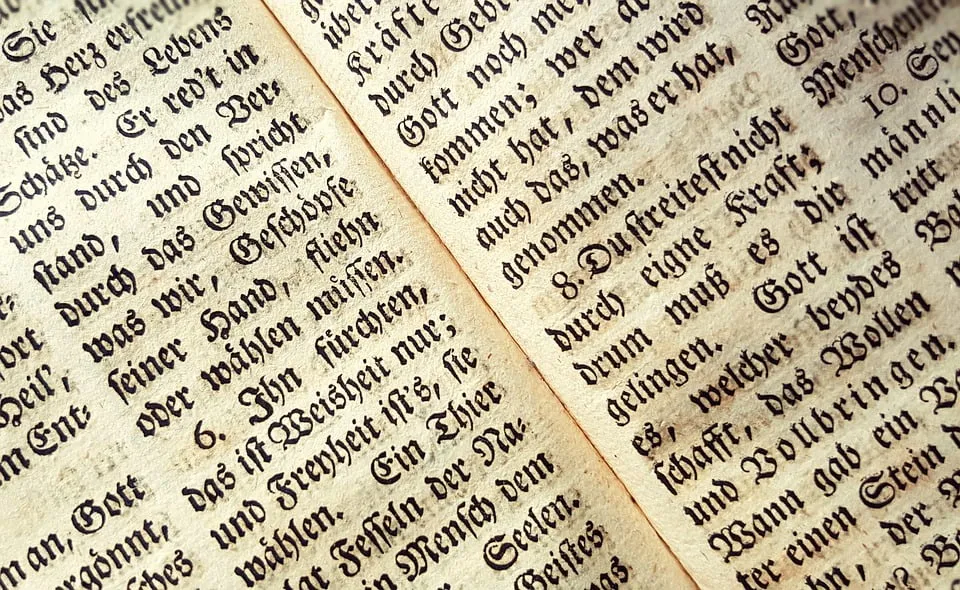 ort
Heil',
m Ent-
Sie
das Herz erfreun
sind des Lebens
Schätze. Er red't in
uns durch den Ver-
stand, und spricht
durch das Gewissen,
was wir, Geschöpfe
seiner Hand, fliehn
oder wählen müssen.
6. Ihn fürchten,
das ist Weisheit nur;
und Freyheit ist's, sie
wählen. Ein Thier
Fesseln der Na-
Mensch dem
Seelen.
Geistes
m an, Gott
ergönnt,
sches
über
Kräfte
durch Gebe
Gott noch meh
kommen; wer da
nicht hat, dem wird
auch das, was er hat,
genommen.
8. Du streitest nicht
durch eigne Kraft;
drum muß es die
gelingen. Gott ist
es, welcher beydes
schafft, das Wollen
und Vollbringen.
Wann gab ein Va-
ter einen Stein
der
Gott,
Menschen
10.
männli
tritt